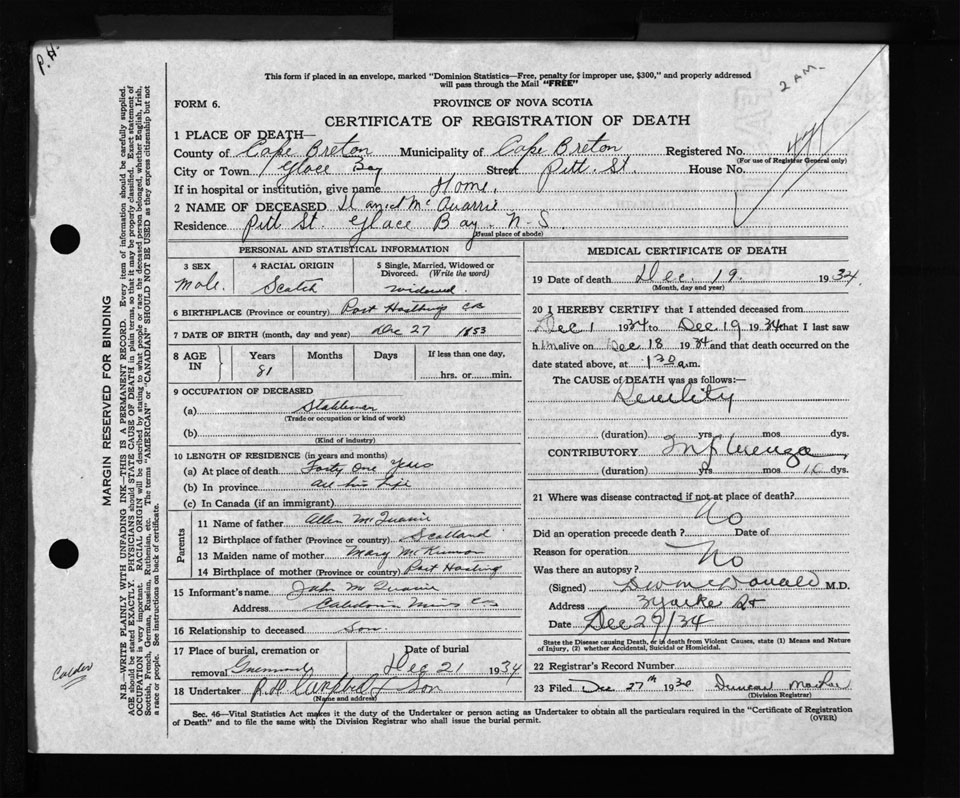 P.H.
2 A.M.
This form if placed in an envelope, marked "Dominion Statistics—Free, penalty for improper use, $300," and properly addressed
will pass through the Mail "FREE"
FORM 6.
PROVINCE OF NOVA SCOTIA
CERTIFICATE OF REGISTRATION OF DEATH
1 PLACE OF DEATH—
County of Cape Breton Municipality of Cape Breton Registered No.
(For use of Registrar General only)
City or Town Glace Bay Street Pitt. St. House No.
If in hospital or institution, give name Home.
2 NAME OF DECEASED Daniel McQuarrie
Residence Pitt St. Glace Bay. N-S.
(Usual place of abode)
PERSONAL AND STATISTICAL INFORMATION
3 SEX
Male.
4 RACIAL ORIGIN
Scotch
5 Single, Married, Widowed or
Divorced. (Write the word)
Widowed.
6 BIRTHPLACE (Province or country) Port Hastings CB
7 DATE OF BIRTH (month, day and year) Dec 27 1853
8 AGE
IN
Years
81
Months
Days
If less than one day,
hrs. or min.
9 OCCUPATION OF DECEASED
(a) Stableman
(Trade or occupation or kind of work)
(b)
(Kind of industry)
10 LENGTH OF RESIDENCE (in years and months)
(a) At place of death Forty One Years
(b) In province all his Life
(c) In Canada (if an immigrant)
Parents
11 Name of father Allen McQuarrie
12 Birthplace of father (Province or country) Scotland
13 Maiden name of mother Mary McKinnon
14 Birthplace of mother (Province or country) Port Hasting
15 Informant's name John McQuarrie
Address Caledonia Mines CB
16 Relationship to deceased Son.
17 Place of burial, cremation or
removal
Date of burial
Dec 21 1934
18 Undertaker Son
(Name and address)
MEDICAL CERTIFICATE OF DEATH
19 Date of death Dec. 19 1934
(Month, day and year)
20 I HEREBY CERTIFY that I attended deceased from
Dec 1 1934 to Dec 19 1934 that I last saw
him alive on Dec 18 1934 and that death occurred on the
date stated above, at 1 30 a.m.
The CAUSE of DEATH was as follows:—
(duration) yrs. mos. dys.
CONTRIBUTORY Influenza
(duration) yrs mos dys.
21 Where was disease contracted if not at place of death?
Did an operation precede death? No Date of
Reason for operation
Was there an autopsy? No
(Signed) McDonald M.D.
Address
Date Dec 29/34
State the Disease causing Death, or in death from Violent Causes, state (1) Means and Nature
of Injury, (2) whether Accidental, Suicidal or Homicidal.
22 Registrar's Record Number
23 Filed Dec 27th 1930 Duncan
(Division Registrar)
Sec. 46—Vital Statistics Act makes it the duty of the Undertaker or person acting as Undertaker to obtain all the particulars required in the "Certificate of Registration
of Death" and to file the same with the Division Registrar who shall issue the burial permit.
(OVER)
MARGIN RESERVED FOR BINDING
N.B.—WRITE PLAINLY WITH UNFADING INK—THIS IS A PERMANENT RECORD. Every item of information should be carefully supplied.
AGE should be stated EXACTLY. PHYSICIANS should STATE CAUSE OF DEATH in plain terms, so that it may be properly classified. Exact statement of
OCCUPATION is very important. RACIAL ORIGIN will be described by stating to what people or race the deceased person belonged, whether English, Irish,
Scottish, French, German, Russian, Ruthenian, etc. The terms "AMERICAN" or "CANADIAN" SHOULD NOT BE USED as they express citizenship but not
a race or people. See instructions on back of certificate.
Calder